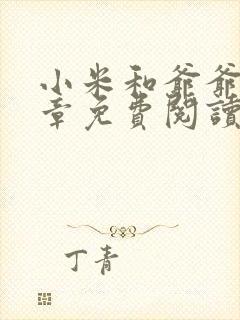 小米和爺爺
章免費閱讀
丁青